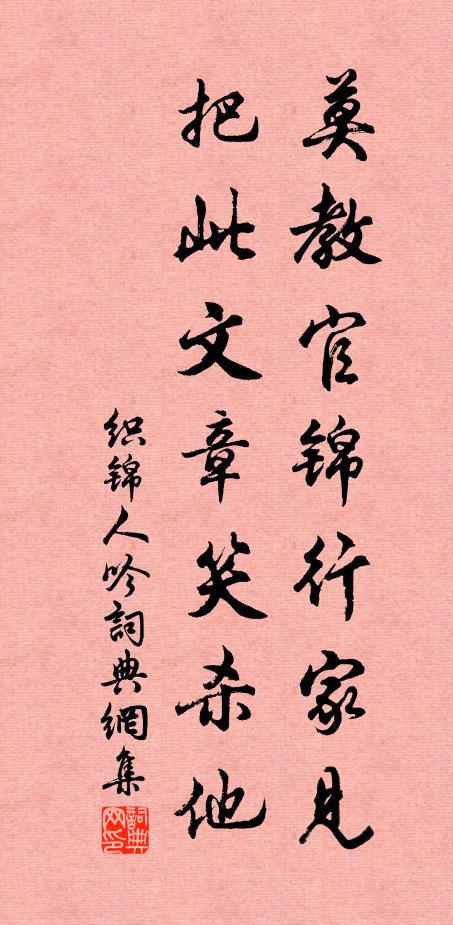 莫教官锦行家見
把此文章笑杀他
织锦人吟詞典網集
詞典网印